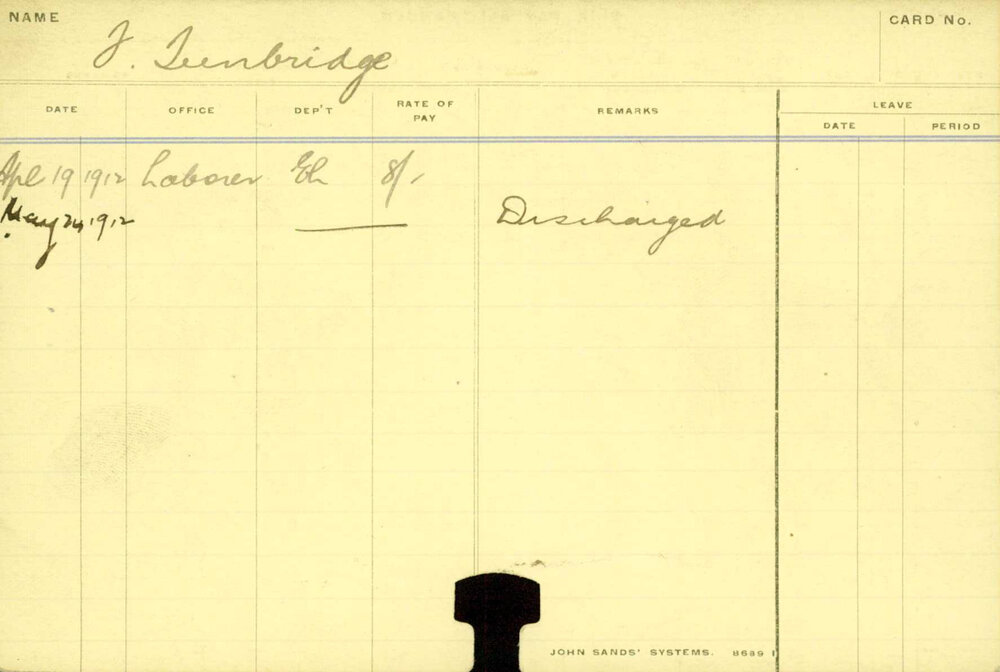 NAME
CARD No.
J. Tunbridge
DATE OFFICE DEP'T RATE OF PAY REMARKS LEAVE
DATE PERIOD
Apl 19 1912 Laborer 8/-
May 24 1912 Discharged
JOHN SANDS' SYSTEMS. 8689 1